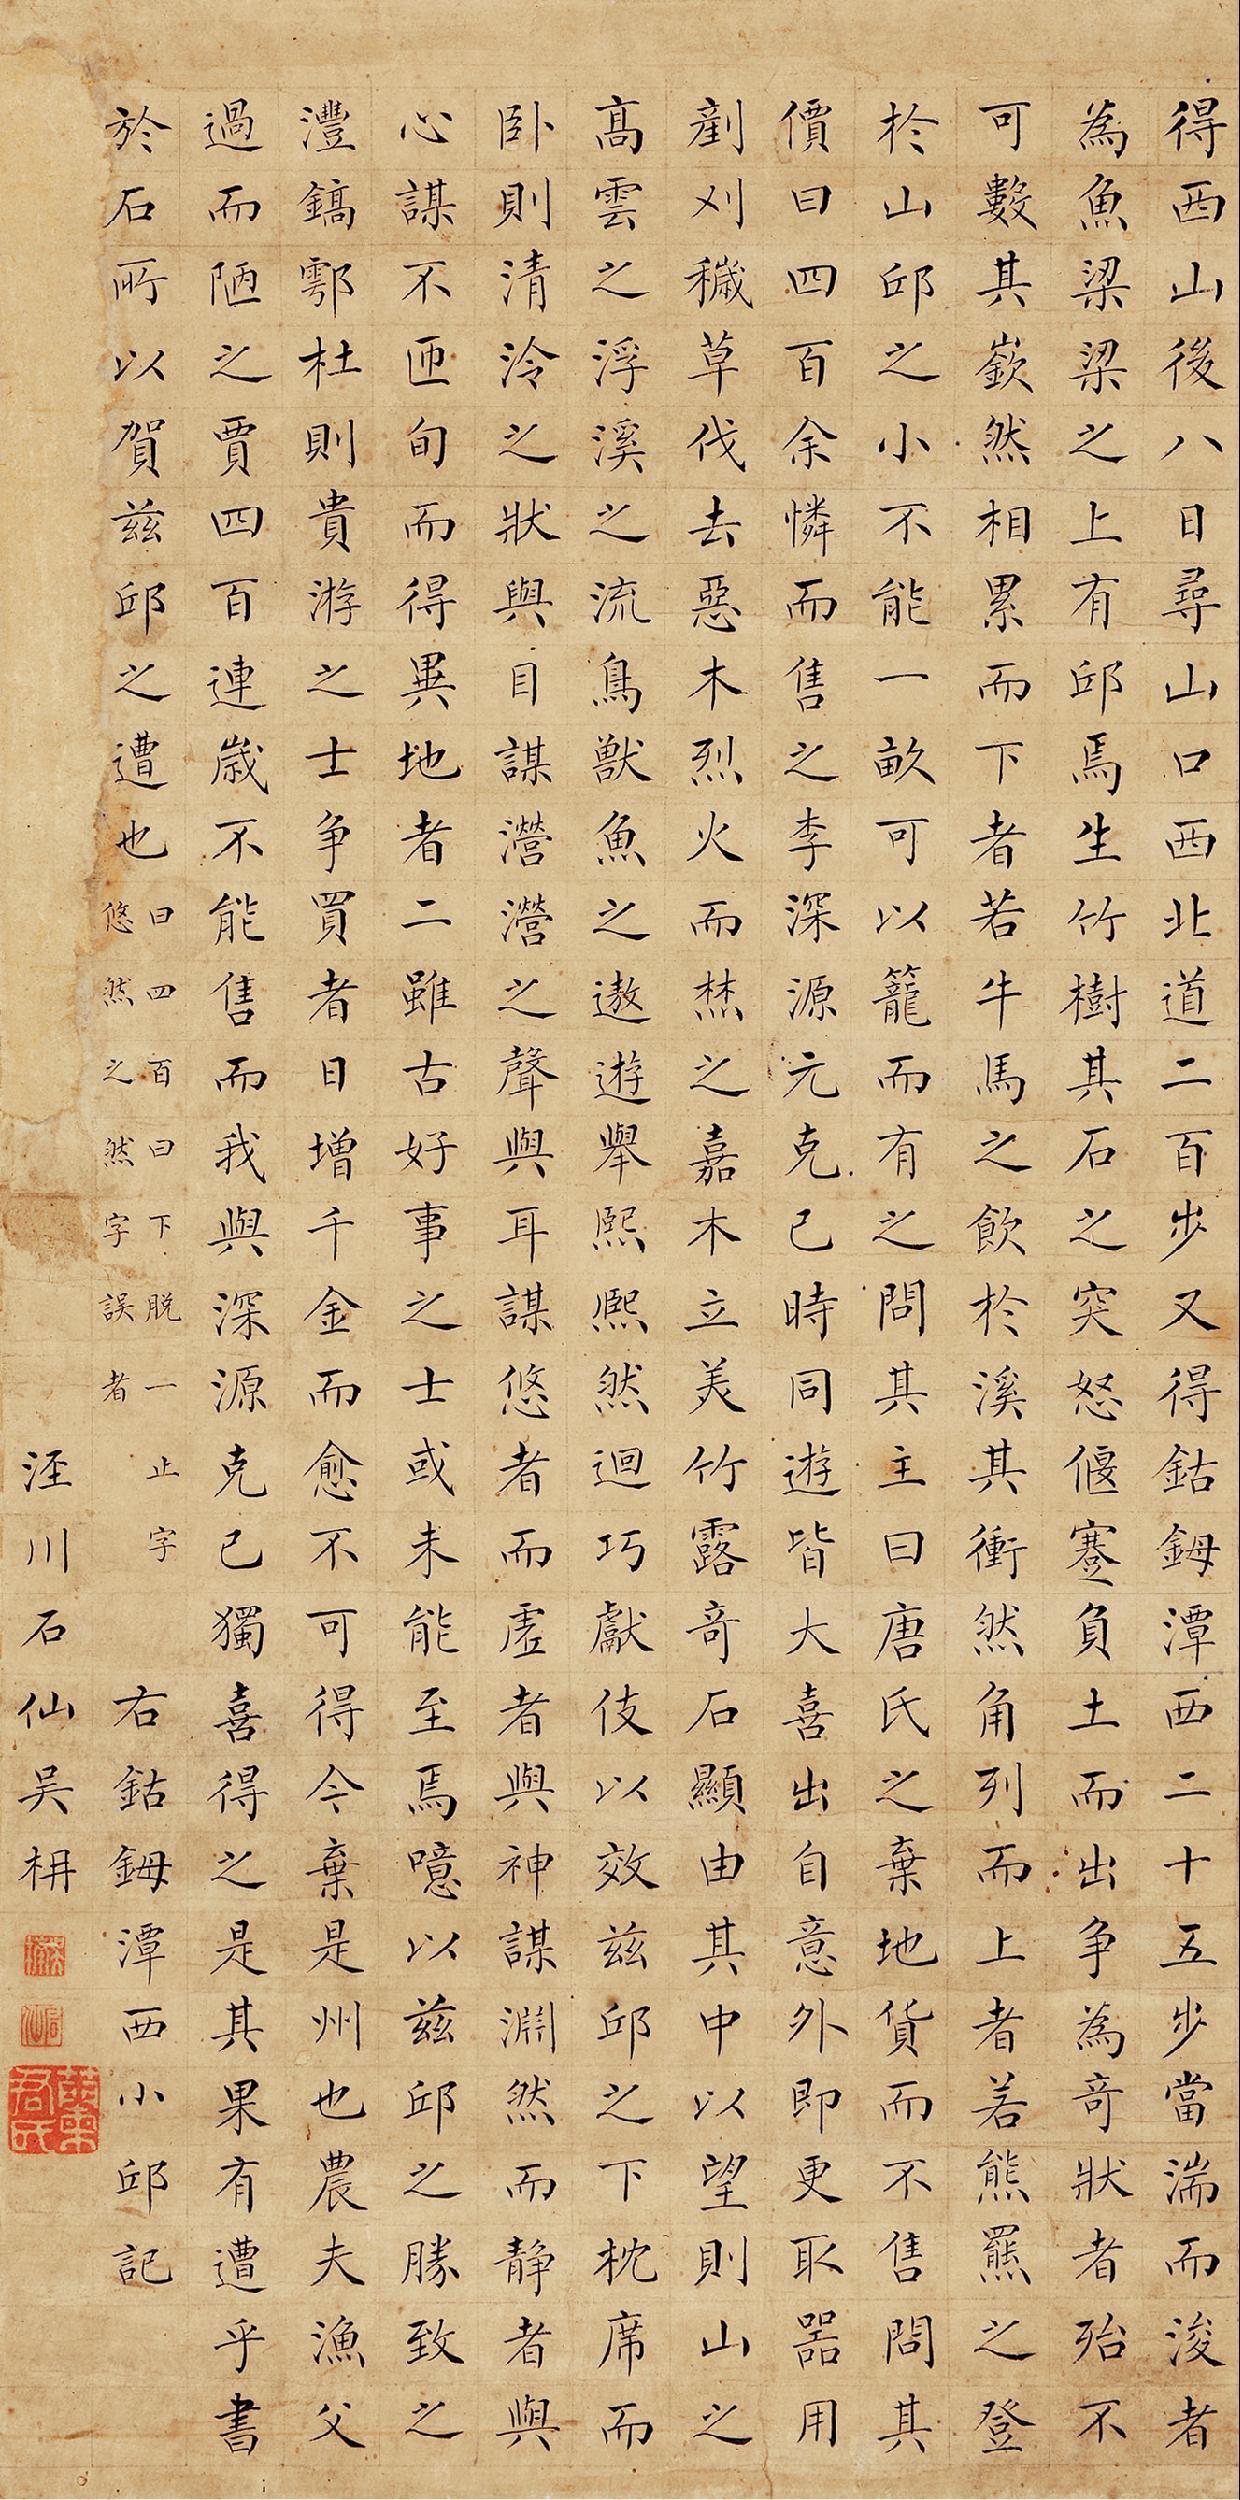 得西山後八日尋山口西北道二百步又得鈷鉧潭西二十五步當湍而浚者
為魚梁梁之上有邱焉生竹樹其石之突怒偃蹇負土而出争為奇狀者殆不
可數其嶔然相累而下者若牛馬之飲於溪其衝然角列而上者若熊羆之登
於山邱之小不能一畝可以籠而有之問其主曰唐氏之棄地貨而不售問其
價曰四百余憐而售之李深源元克己時同遊皆大喜出自意外即更取器用
剷刈穢草伐去惡木烈火而焚之嘉木立美竹露奇石顯由其中以望則山之
高雲之浮溪之流鳥獸魚之遨遊舉熙熙然迴巧獻伎以效兹邱之下枕席而
卧則清泠之狀與目謀瀯瀯之聲與耳謀悠者而虛者與神謀淵然而静者與
心謀不匝旬而得異地者二雖古好事之士或未能至焉噫以兹邱之勝致之
灃鎬鄠杜則貴游之士争買者日增千金而愈不可得今棄是州也農夫漁父
過而陋之賈四百連歲不能售而我與深源克己獨喜得之是其果有遭乎書
於石所以賀兹邱之遭也
曰四百曰下脱一止字
悠然之然字誤者
右鈷鉧潭西小邱記
涇川石仙吴枏